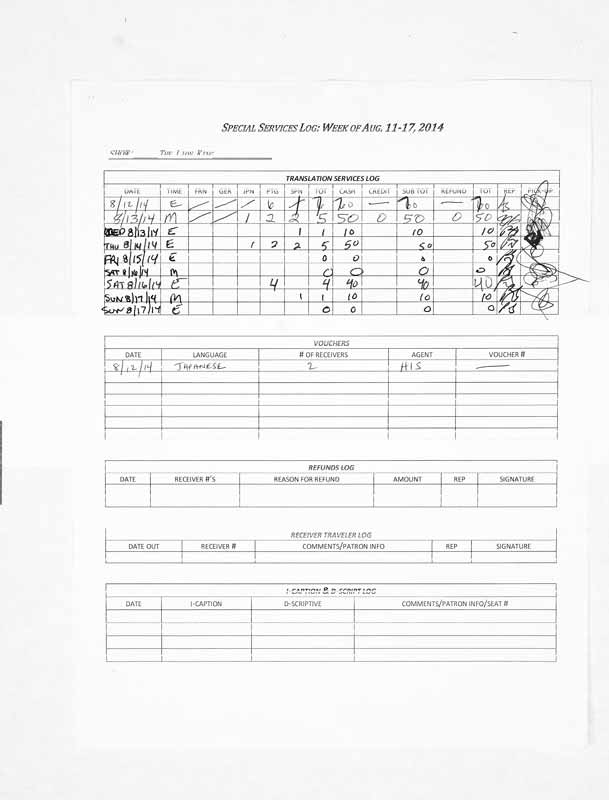 SPECIAL SERVICES LOG: WEEK OF AUG. 11-17, 2014
SHOW: THE LION KING
TRANSLATION SERVICES LOG
DATE TIME FRN GER JPN PTG SPN TOT CASH CREDIT SUB TOT REFUND TOT REP PICK-UP
8/12/14 E — — — 6 — —
8/13/14 M — — 1 2 2 5 50 0 50 0 50
WED 8/13/14 E 1 1 10 10 10
THU 8/14/14 E 1 2 2 5 50 50 50
FRI 8/15/14 E 0 0 0 0
SAT 8/16/14 M 0 0 0 0
SAT 8/16/14 E 4 4 40 40 40
SUN 8/17/14 M 1 1 10 10 10
SUN 8/17/14 E 0 0 0 0
VOUCHERS
DATE LANGUAGE # OF RECEIVERS AGENT VOUCHER #
8/12/14 JAPANESE 2 HIS —
REFUNDS LOG
DATE RECEIVER #'S REASON FOR REFUND AMOUNT REP SIGNATURE
RECEIVER TRAVELER LOG
DATE OUT RECEIVER # COMMENTS/PATRON INFO REP SIGNATURE
I-CAPTION & D-SCRIPT LOG
DATE I-CAPTION D-SCRIPTIVE COMMENTS/PATRON INFO/SEAT #